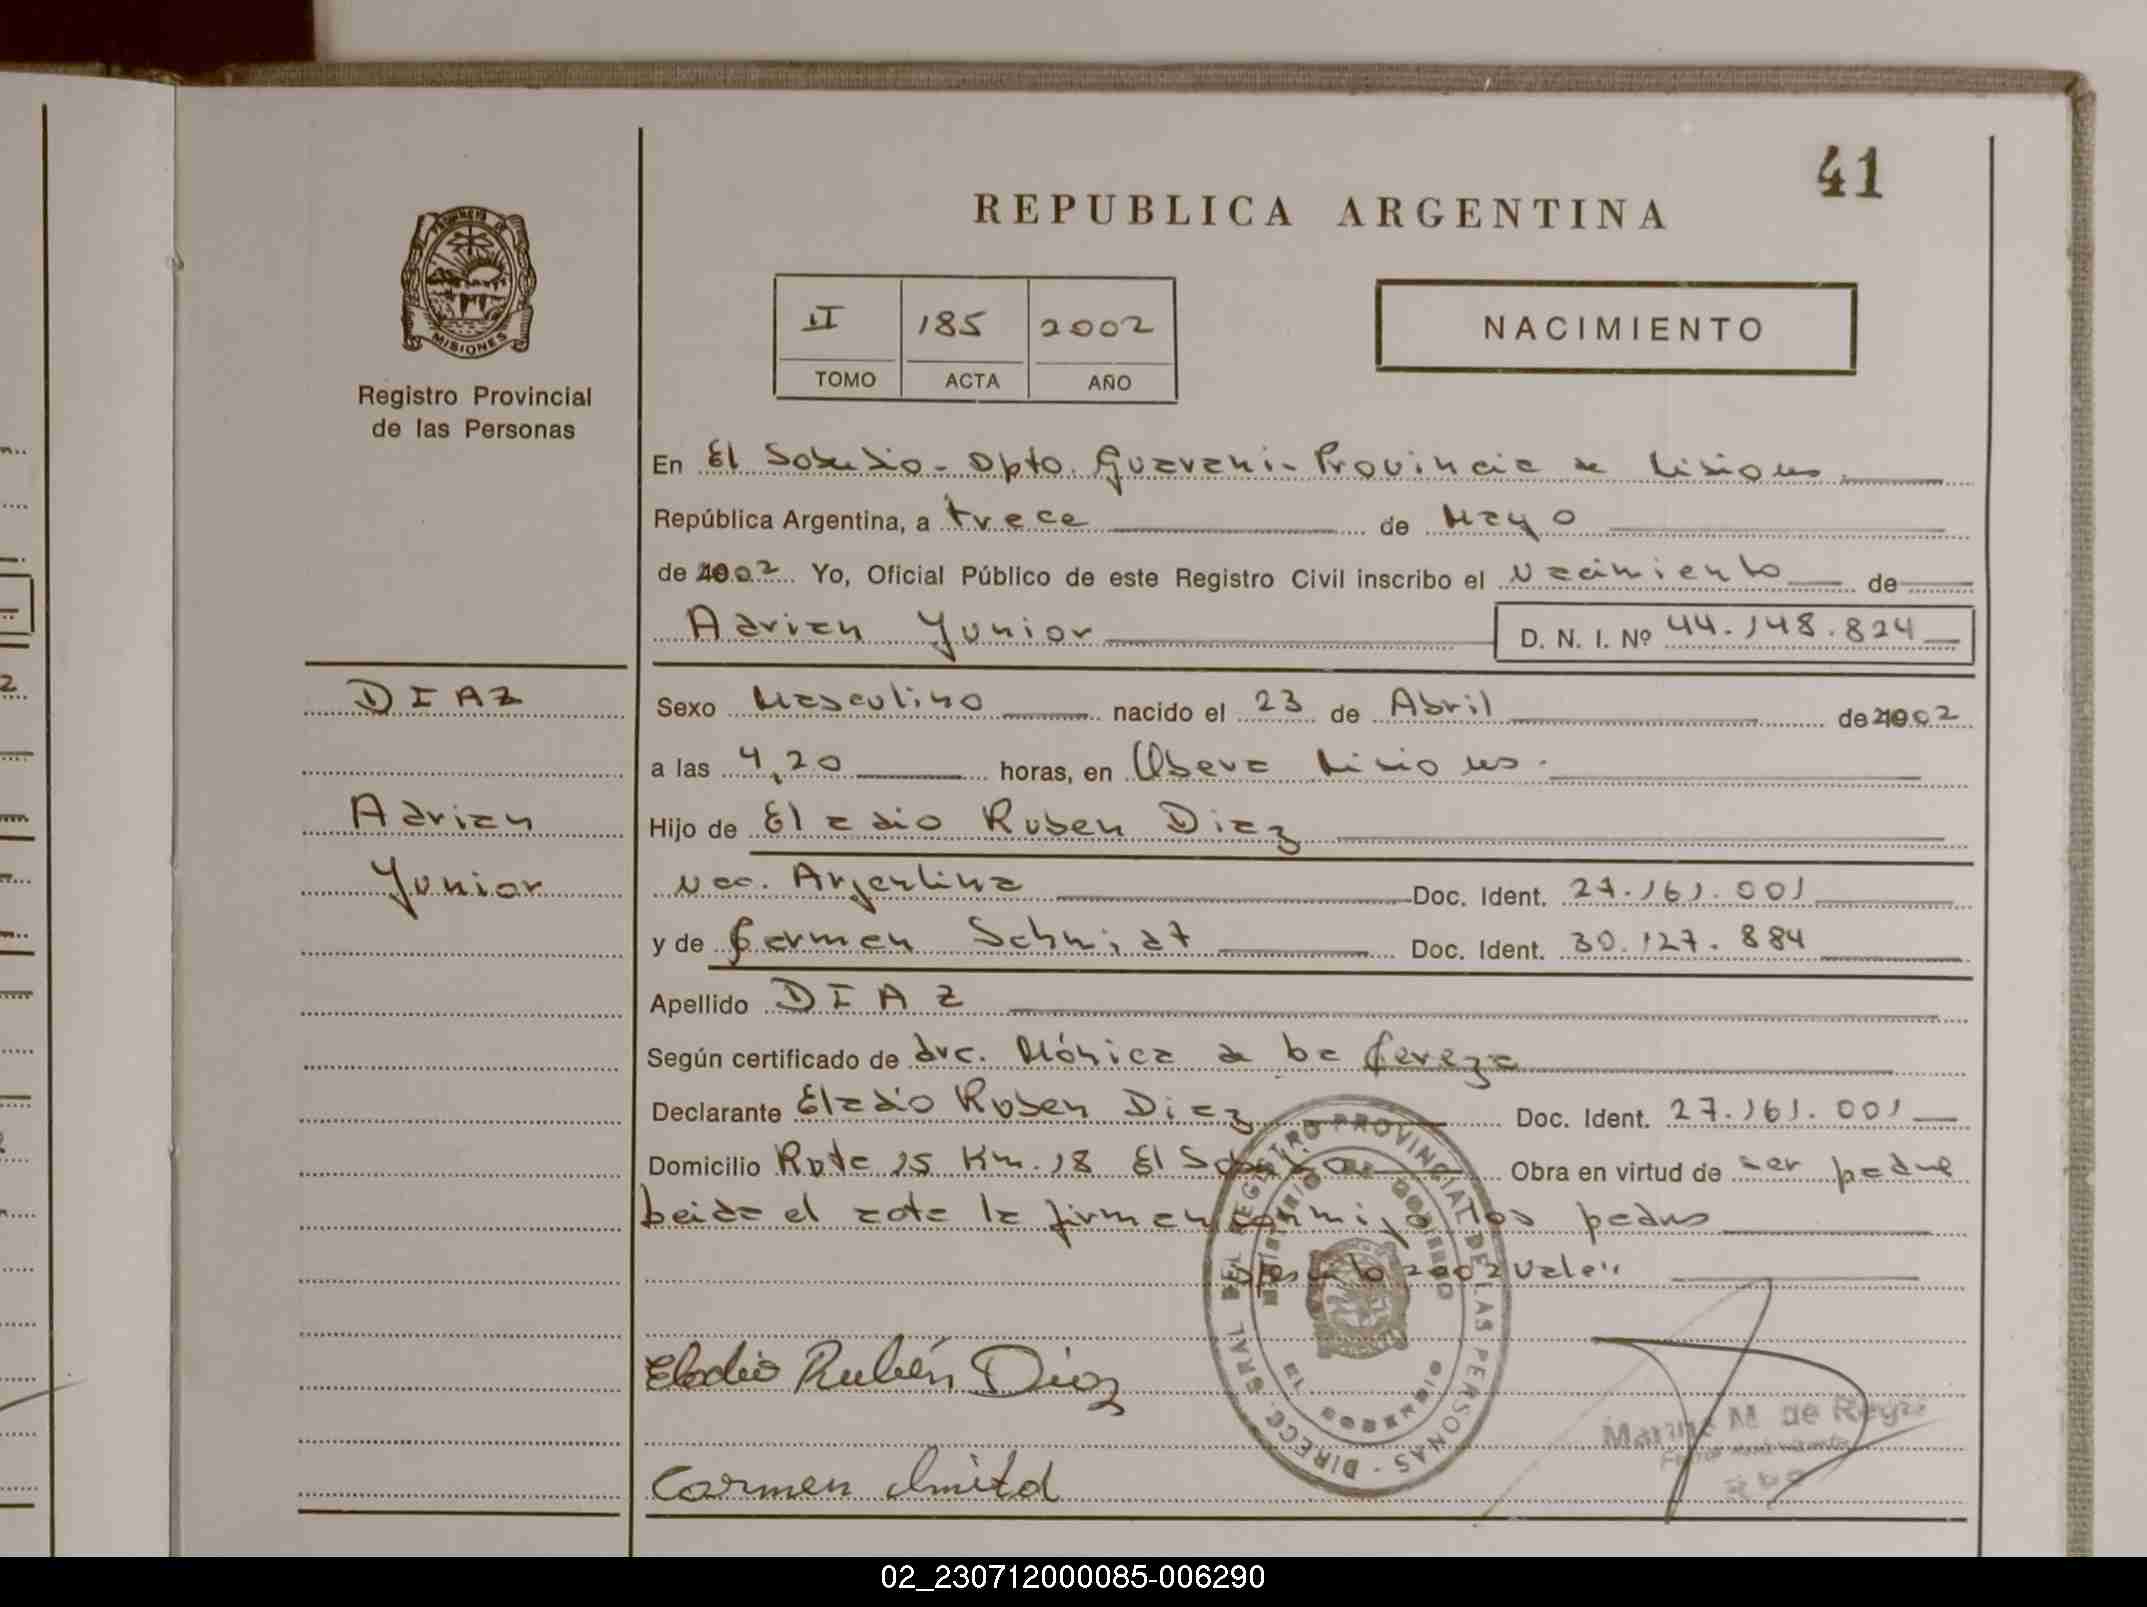 41
REPUBLICA ARGENTINA
PROVINCIA DE
MISIONES
Registro Provincial
de las Personas
II 185 2002
TOMO ACTA AÑO
NACIMIENTO
En El Soberbio - Dpto. Guarani - Provincia de Misiones
República Argentina, a trece de Mayo
de 2002 Yo, Oficial Público de este Registro Civil inscribo el Nacimiento de
Adrian Yunior D. N. I. Nº 44.148.824
DIAZ
Adrian
Yunior
Sexo Masculino nacido el 23 de Abril de 2002
a las 4,20 horas, en Obera Misiones.
Hijo de Eladio Ruben Diaz
Nac. Argentina Doc. Ident. 27.161.001
y de Carmen Schmidt Doc. Ident. 30.127.884
Apellido DIAZ
Según certificado de dra. Mónica de La Cereza
Declarante Eladio Ruben Diaz Doc. Ident. 27.161.001
Domicilio Ruta 15 Km. 18 El Soberbio Obra en virtud de ser padre
Leida el acta la firman conmigo los padres
2002 vale"
Eladio Rubén Diaz
Carmen
DIRECC. GRAL. DEL REGISTRO PROVINCIAL DE LAS PERSONAS
MINISTERIO DE GOBIERNO
EL SOBERBIO
M. de Reyes
02_230712000085-006290